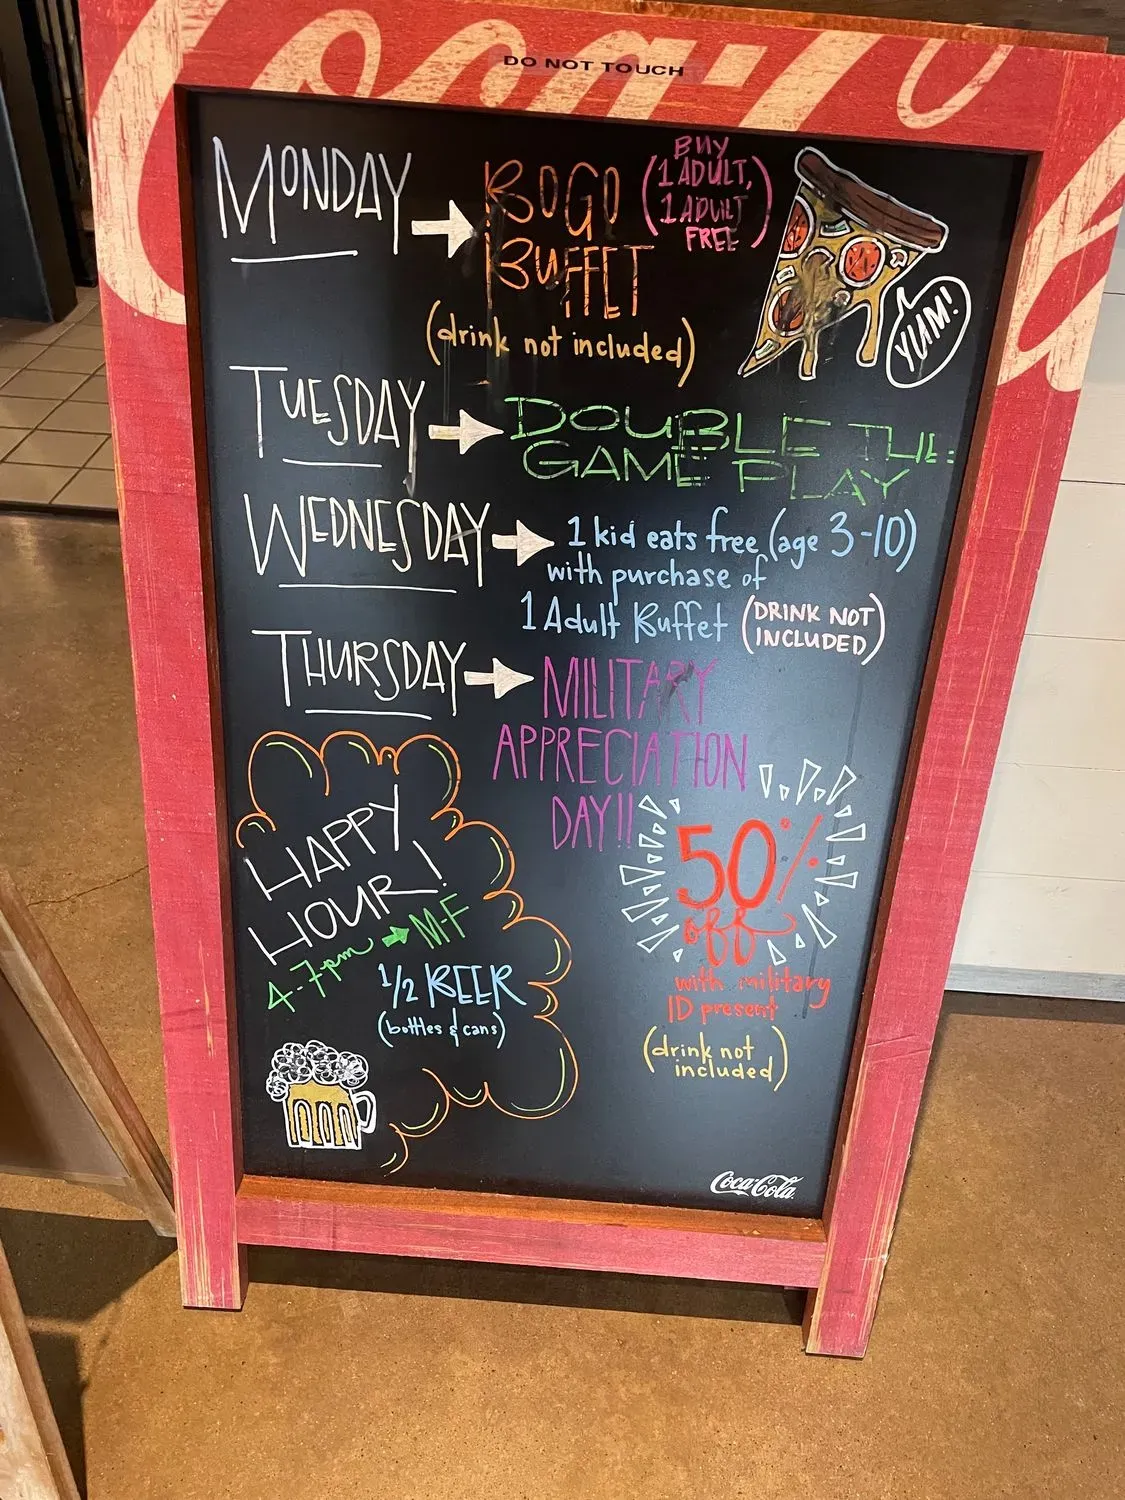 Coca-Co
DO NOT TOUCH
MONDAY
BOGO
BUFFET
(BUY
1 ADULT,
1 ADULT
FREE)
(drink not included)
YUM!
TUESDAY
DOUBLE THE
GAME PLAY
WEDNESDAY
1 kid eats free (age 3-10)
with purchase of
1 Adult Buffet
(DRINK NOT
INCLUDED)
THURSDAY
MILITARY
APPRECIATION
DAY!!
50%
off
with military
ID present
(drink not
included)
HAPPY
HOUR!
4-7pm M-F
1/2 BEER
(bottles & cans)
Coca-Cola